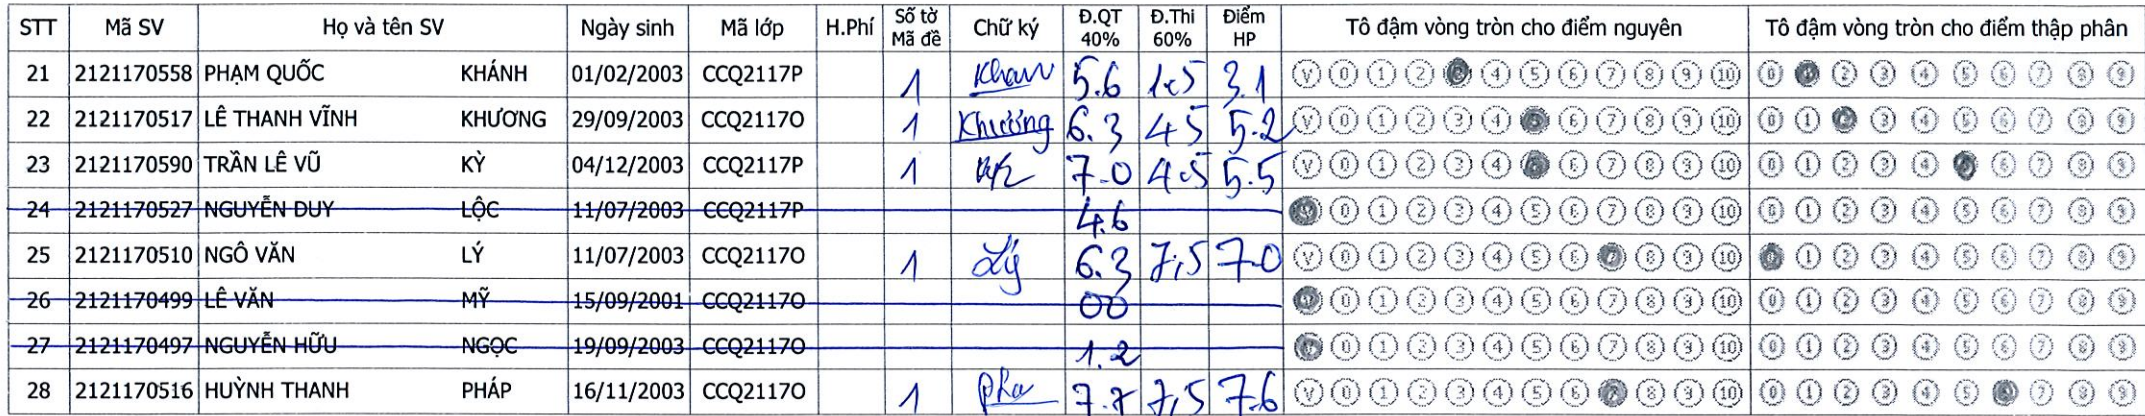 STT Mã SV Họ và tên SV Ngày sinh Mã lớp H.Phí Số tờ Mã đề Chữ ký Đ.QT 40% Đ.Thi 60% Điểm HP Tô đậm vòng tròn cho điểm nguyên Tô đậm vòng tròn cho điểm thập phân
21 2121170558 PHẠM QUỐC KHÁNH 01/02/2003 CCQ2117P 1 Khan 5.6 1.5 3.1 V 0 1 2 4 5 6 7 8 9 10 0 2 3 4 5 6 7 8 9
22 2121170517 LÊ THANH VĨNH KHƯƠNG 29/09/2003 CCQ2117O 1 Khương 6.3 4.5 5.2 V 0 1 2 3 4 5 6 7 8 9 10 0 1 3 4 5 6 7 8 9
23 2121170590 TRẦN LÊ VŨ KỲ 04/12/2003 CCQ2117P 1 7.0 4.5 5.5 V 0 1 2 3 4 6 7 8 9 10 0 1 2 3 4 6 7 8 9
24 2121170527 NGUYỄN DUY LỘC 11/07/2003 CCQ2117P 4.6 0 1 2 3 4 5 6 7 8 9 10 0 1 2 3 4 5 6 7 8 9
25 2121170510 NGÔ VĂN LÝ 11/07/2003 CCQ2117O 1 Lý 6.3 7,5 7.0 V 0 1 2 3 4 5 6 8 9 10 1 2 3 4 5 6 7 8 9
26 2121170499 LÊ VĂN MỸ 15/09/2001 CCQ2117O 00 0 1 2 3 4 5 6 7 8 9 10 0 1 2 3 4 5 6 7 8 9
27 2121170497 NGUYỄN HỮU NGỌC 19/09/2003 CCQ2117O 1.2 0 1 2 3 4 5 6 7 8 9 10 0 1 2 3 4 5 6 7 8 9
28 2121170516 HUỲNH THANH PHÁP 16/11/2003 CCQ2117O 1 Pha 7.7 7,5 7.6 V 0 1 2 3 4 5 6 8 9 10 0 1 2 3 4 5 7 8 9